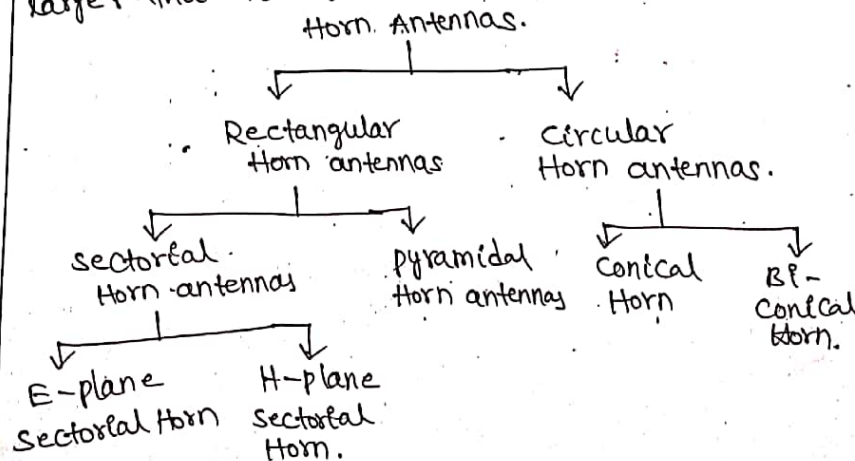 Horn Antennas.
Rectangular
Horn antennas
Circular
Horn antennas.
Sectorial
Horn antennas
Pyramidal
Horn antennas
Conical
Horn
Bi-
Conical
Horn.
E-plane
Sectorial Horn
H-plane
Sectorial
Horn.